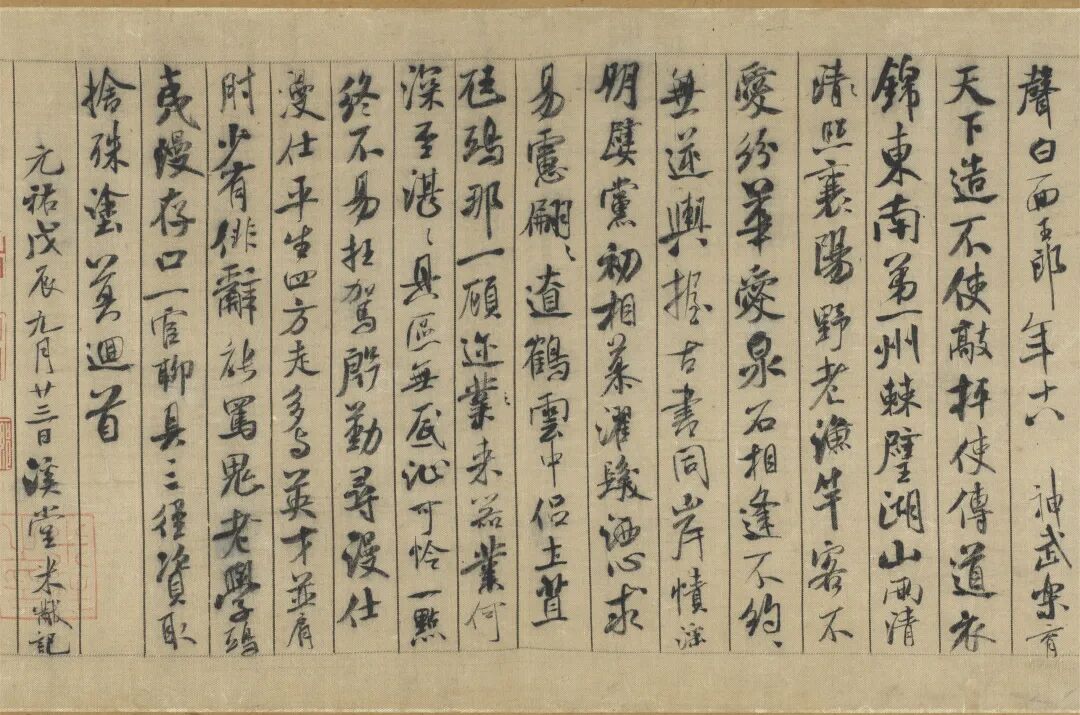 聲白面玉郎年十八 神武樂育
天下造不使敲枰使傳道衣
錦東南第一州棘璧湖山兩清
照襄陽野老漁竿客不
愛紛華愛泉石相逢不約〻
無逆輿握古書同岸幘淫
朋嬖黨初相慕濯髮洒心求
易慮翩〻遼鶴雲中侶土苴
尪鴟那一顧迩業來器業何
深至湛〻具區無底沚可怜一點
終不易枉駕殷勤尋漫仕
漫仕平生四方走多与英才並肩
肘少有俳辭能罵鬼老學鴟
夷漫存口一官聊具三徑資取
捨殊塗莫迴首
元祐戊辰九月廿三日溪堂米黻記